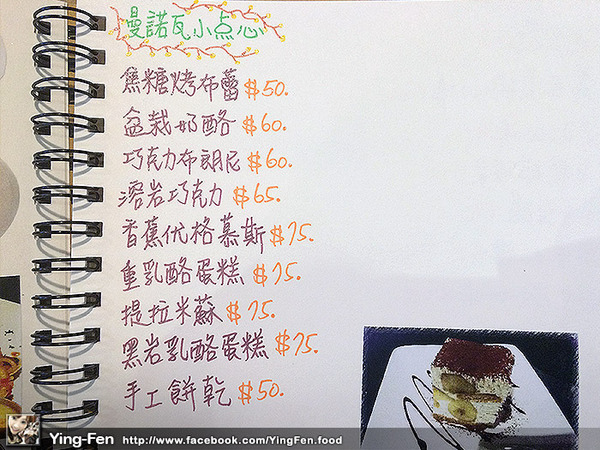 曼諾瓦小点心
焦糖烤布蕾 $50.
盆栽奶酪 $60.
巧克力布朗尼 $60.
溶岩巧克力 $65.
香蕉优格慕斯 $75.
重乳酪蛋糕 $75.
提拉米蘇 $75.
黑岩乳酪蛋糕 $75.
手工餅乾 $50.
Ying-Fen http://www.facebook.com/YingFen.food